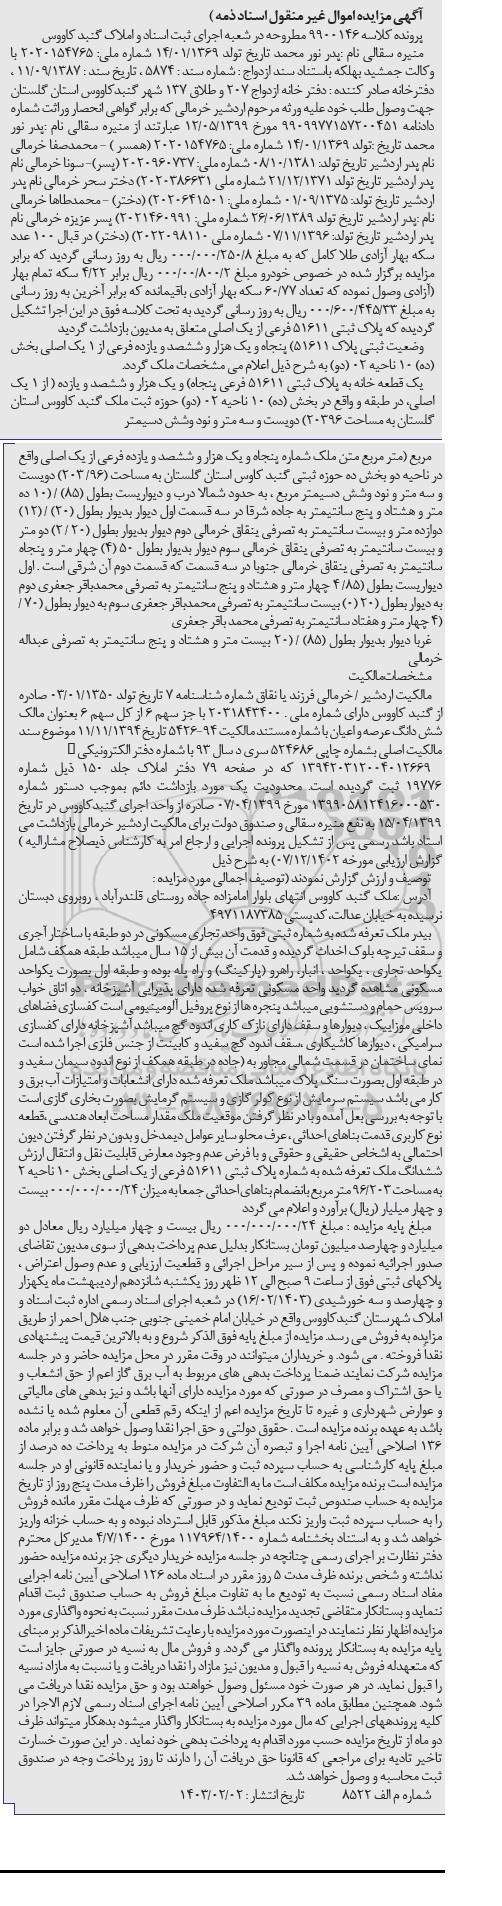 آگهی مزایده اموال غیر منقول اسناد ذمه )
پرونده کلاسه ۹۹۰۰۱۴۶ مطروحه در شعبه اجرای ثبت اسناد و املاک گنبد کاووس
منیره سقالی نام :پدر نور محمد تاریخ تولد ۱۴/۰۱/۱۳۶۹ شماره ملی: ۲۰۲۰۱۵۴۷۶۵ با
وکالت جمشید بهلکه باستناد سند ازدواج : شماره سند : ۵۸۷۴ ، تاریخ سند : ۱۱/۰۹/۱۳۸۷ ،
دفترخانه صادر کننده : دفتر خانه ازدواج ۲۰۷ و طلاق ۱۳۷ شهر گنبدکاووس استان گلستان
جهت وصول طلب خود علیه ورثه مرحوم اردشیر خرمالی که برابر گواهی انحصار وراثت شماره
دادنامه ۹۹۰۹۹۷۷۱۵۷۲۰۰۴۵۱ مورخ ۱۲/۰۵/۱۳۹۹ عبارتند از منیره سقالی نام :پدر نور
محمد تاریخ :تولد ۱۴/۰۱/۱۳۶۹ شماره ملی: ۲۰۲۰۱۵۴۷۶۵ (همسر ) - محمدصفا خرمالی
نام پدر اردشیر تاریخ تولد: ۰۸/۱۰/۱۳۸۱ شماره ملی: ۲۰۲۰۹۶۰۷۳۷ (پسر)- سونا خرمالی نام
پدر اردشیر تاریخ تولد ۲۱/۱۲/۱۳۷۱ شماره ملی ۲۰۲۰۳۸۶۶۳۱ دختر سحر خرمالی نام پدر
اردشیر تاریخ تولد: ۰۱/۰۹/۱۳۷۵ شماره ملی: ۲۰۲۰۶۴۱۵۰۱ (دختر) - محمدطاها خرمالی
نام :پدر اردشیر تاریخ تولد ۲۶/۰۶/۱۳۸۹ شماره ملی: ۲۰۲۱۴۶۰۹۹۱) پسر عزیزه خرمالی نام
پدر اردشیر تاریخ تولد: ۰۷/۱۱/۱۳۹۶ شماره ملی ۲۰۲۲۰۹۸۱۱۰ (دختر) در قبال ۱۰۰ عدد
سکه بهار آزادی طلا کامل که به مبلغ ۰۰۰/۰۰۰/۲۵۰/۸ ریال به روز رسانی گردید که برابر
مزایده برگزار شده در خصوص خودرو مبلغ ۰۰۰/۰۰/۸۰۰/۲ ریال برابر ۴/۲۲ سکه تمام بهار
(آزادی وصول نموده که تعداد ۶۰/۷۷ سکه بهار آزادی باقیمانده که برابر آخرین به روز رسانی
به مبلغ ۰۰۰/۶۰۰/۴۴۵/۳۳ ریال به روز رسانی گردید به تحت کلاسه فوق در این اجرا تشکیل
گردیده که پلاک ثبتی ۵۱۶۱۱ فرعی از یک اصلی متعلق به مدیون بازداشت گردید
وضعیت ثبتی پلاک ۵۱۶۱۱) پنجاه و یک هزار و ششصد و یازده فرعی از ۱ یک اصلی بخش
(ده) ۱۰ ناحیه ۰۲ (دو) به شرح ذیل اعلام می مشخصات ملک گردد.
یک قطعه خانه به پلاک ثبتی ۵۱۶۱۱ فرعی پنجاه) و یک هزار و ششصد و یازده ( از ۱ یک
اصلی، در طبقه و واقع در بخش (ده) ۱۰ ناحیه ۰۲ (دو) حوزه ثبت ملک گنبد کاووس استان
گلستان به مساحت ۲۰۳۹۶) دویست و سه متر و نود وشش دسیمتر
مربع (متر مربع متن ملک شماره پنجاه و یک هزار و ششصد و یازده فرعی از یک اصلی واقع
در ناحیه دو بخش ده حوزه ثبتی گنبد کاوس استان گلستان به مساحت (۲۰۳/۹۶) دویست
و سه متر و نود وشش دسیمتر مربع ، به حدود شمالا درب و دیواریست بطول (۸۵) / (۱۰ ده
متر و هشتاد و پنج سانتیمتر به جاده شرقا در سه قسمت اول دیوار بدیوار بطول (۲۰) / (۱۲)
دوازده متر و بیست سانتیمتر به تصرفی ینقاق خرمالی دوم دیوار بدیوار بطول (۲۰ / ۲) دو متر
و بیست سانتیمتر به تصرفی ینقاق خرمالی سوم دیوار بدیوار بطول ۵۰ (۴) چهار متر و پنجاه
سانتیمتر به تصرفی ینقاق خرمالی جنوبا در سه قسمت که قسمت دوم آن شرقی است . اول
دیواریست بطول (۸۵/ ۴ چهار متر و هشتاد و پنج سانتیمتر به تصرفی محمدباقر جعفری دوم
به دیوار بطول (۲۰ (۰) بیست سانتیمتر به تصرفی محمدباقر جعفری سوم به دیوار بطول (۷۰ /
(۴ چهار متر و هفتاد سانتیمتر به تصرفی محمد باقر جعفری
غربا دیوار بدیوار بطول (۸۵) / (۲۰ بیست متر و هشتاد و پنج سانتیمتر به تصرفی عبداله
خرمالی
مشخصات‌مالکیت
مالکیت اردشیر / خرمالی فرزند یا نقاق شماره شناسنامه ۷ تاریخ تولد ۰۳/۰۱/۱۳۵۰ صادره
از گنبد کاووس دارای شماره ملی . ۲۰۳۱۸۴۳۴۰۰ با جز سهم ۶ از کل سهم ۶ بعنوان مالک
شش دانگ عرصه و اعیان با شماره مستند مالکیت ۹۴-۵۴۲۶ تاریخ ۱۱/۱۱/۱۳۹۴ موضوع سند
مالکیت اصلی بشماره چاپی ۵۲۴۶۸۶ سری د سال ۹۳ با شماره دفتر الکترونیکی
۱۳۹۴۲۰۳۱۲۰۰۴۰۱۲۶۶۹ که در صفحه ۷۹ دفتر املاک جلد ۱۵۰ ذیل شماره
۱۹۷۷۶ ثبت گردیده است. محدودیت یک مورد بازداشت دائم بموجب دستور شماره
۱۳۹۹۰۵۸۱۲۴۱۶۰۰۰۵۳۰ مورخ ۰۷/۰۴/۱۳۹۹ صادره از واحد اجرای گنبدکاووس در تاریخ
۱۵/۰۴/۱۳۹۹ به نفع منیره سقالی و صندوق دولت برای مالکیت اردشیر خرمالی بازداشت می
استاد باشد رسمی پس از تشکیل پرونده اجرایی و ارجاع امر به کارشناس ذیصلاح مشارالیه )
گزارش ارزیابی مورخه ۰۷/۱۲/۱۴۰۲) به شرح ذیل
توصیف و ارزش گزارش نمودند (توصیف اجمالی مورد مزایده :
آدرس :ملک گنبد کاووس انتهای بلوار امامزاده جاده روستای قلندرآباد ، روبروی دبستان
نرسیده به خیابان عدالت، کدپستی ۴۹۷۱۱۸۷۳۸۵
بیدر ملک تعرفه شده به شماره ثبتی فوق واحد تجاری مسکونی در دو طبقه با ساختار آجری
و سقف تیرچه بلوک احداث گردیده و قدمت آن بیش از ۱۵ سال میباشد طبقه همکف شامل
یکواحد تجاری ، یکواحد ، انبار، راهرو (پارکینگ) و راه پله بوده و طبقه اول بصورت یکواحد
مسکونی مشاهده گردید واحد مسکونی تعرفه شده دارای پذیرایی آشپزخانه ، دو اتاق خواب
سرویس حمام و دستشویی میباشد پنجره ها از نوع پروفیل آلومینیومی است کفسازی فضاهای
داخلی موزاییک ، دیوارها و سقف دارای نازک کاری اندود گچ میباشد آشپزخانه دارای کفسازی
سرامیکی ، دیوارها کاشیکاری ،سقف اندود گچ سفید و کابینت از جنس فلزی اجرا شده است
نمای ساختمان در قسمت شمالی مجاور به (جاده در طبقه همکف از نوع اندود سیمان سفید و
در طبقه اول بصورت سنگ پلاک میباشد ملک تعرفه شده دارای انشعابات و امتیازات آب برق و
گاز می باشد سیستم سرمایش از نوع کولر گازی و سیستم گرمایش بصورت بخاری گازی است
با توجه به بررسی بعل آمده و با در نظر گرفتن موقعیت ملک مقدار مساحت ابعاد هندسی ،قطعه
نوع کاربری قدمت بناهای احداثی ، عرف محلو سایر عوامل دیمدخل و بدون در نظر گرفتن دیون
احتمالی به اشخاص حقیقی و حقوقی و با فرض عدم وجود معارض قابلیت نقل و انتقال ارزش
ششدانگ ملک تعرفه شده به شماره پلاک ثبتی ۵۱۶۱۱ فرعی از یک اصلی بخش ۱۰ ناحیه ۲
به مساحت ۹۶/۲۰۳ متر مربع بانضمام بناهای احداثی جمعا به میزان ۰۰۰/۰۰۰/۰۰۰/۲۴ بیست
و چهار میلیار (ریال) برآورد و اعلام می گردد
مبلغ پایه مزایده : مبلغ ۰۰۰/۰۰۰/۰۰۰/۲۴ ریال بیست و چهار میلیارد ریال معادل دو
میلیارد و چهارصد میلیون تومان بستانکار بدلیل عدم پرداخت بدهی از سوی مدیون تقاضای
صدور اجرائیه نموده و پس از سیر مراحل اجرائی و قطعیت ارزیابی و عدم وصول اعتراض ،
پلاکهای ثبتی فوق از ساعت ۹ صبح الی ۱۲ ظهر روز یکشنبه شانزدهم اردیبهشت ماه یکهزار
و چهارصد و سه خورشیدی (۱۶/۰۲/۱۴۰۳) در شعبه اجرای اسناد رسمی اداره ثبت اسناد و
املاک شهرستان گنبدکاووس واقع در خیابان امام خمینی جنوبی جنب هلال احمر از طریق
مزایده به فروش می رسد. مزایده از مبلغ پایه فوق الذکر شروع و به بالاترین قیمت پیشنهادی
نقداً فروخته . می شود. و خریداران میتوانند در وقت مقرر در محل مزایده حاضر و در جلسه
مزایده شرکت نمایند ضمنا پرداخت بدهی های مربوط به آب برق گاز اعم از حق انشعاب و
یا حق اشتراک و مصرف در صورتی که مورد مزایده دارای آنها باشد و نیز بدهی های مالیاتی
و عوارض شهرداری و غیره تا تاریخ مزایده اعم از اینکه رقم قطعی آن معلوم شده یا نشده
باشد به عهده برنده مزایده است . حقوق دولتی و حق اجرا نقدا وصول خواهد شد و برابر ماده
۱۳۶ اصلاحی آیین نامه اجرا و تبصره آن شرکت در مزایده منوط به پرداخت ده درصد از
مبلغ پایه کارشناسی به حساب سپرده ثبت و حضور خریدار و یا نماینده قانونی او در جلسه
مزایده است برنده مزایده مکلف است ما به التفاوت مبلغ فروش را ظرف مدت پنج روز از تاریخ
مزایده به حساب صندوص ثبت تودیع نماید و در صورتی که ظرف مهلت مقرر مانده فروش
را به حساب سپرده ثبت واریز نکند مبلغ مذکور قابل استرداد نبوده و به حساب خزانه واریز
خواهد شد و به استناد بخشنامه شماره ۱۱۷۹۶۴/۱۴۰۰ مورخ ۴/۷/۱۴۰۰ مدیرکل محترم
دفتر نظارت بر اجرای رسمی چنانچه در جلسه مزایده خریدار دیگری جز برنده مزایده حضور
نداشته و شخص برنده ظرف مدت ۵ روز مقرر در اسناد ماده ۱۲۶ اصلاحی آیین نامه اجرایی
مفاد اسناد رسمی نسبت به تودیع ما به تفاوت مبلغ فروش به حساب صندوق ثبت اقدام
ننماید و بستانکار متقاضی تجدید مزایده نباشد ظرف مدت مقرر نسبت به نحوه واگذاری مورد
مزایده اظهار نظر ننمایند در اینصورت مورد مزایده با رعایت تشریفات ماده اخیرالذکر بر مبنای
پایه مزایده به بستانکار پرونده واگذار می گردد. و فروش مال به نسیه در صورتی جایز است
که متعهدله فروش به نسیه را قبول و مدیون نیز مازاد را نقدا دریافت و یا نسبت به مازاد نسیه
را قبول نماید. در هر صورت خود مسئول وصول خواهند بود و حق مزایده نقدا دریافت می
شود. همچنین مطابق ماده ۳۹ مکرر اصلاحی آیین نامه اجرای اسناد رسمی لازم الاجرا در
کلیه پروندههای اجرایی که مال مورد مزایده به بستانکار واگذار میشود بدهکار میتواند ظرف
دو ماه از تاریخ مزایده حسب مورد اقدام به پرداخت بدهی خود نماید . در این صورت خسارت
تاخیر تادیه برای مراجعی که قانونا حق دریافت آن را دارند تا روز پرداخت وجه در صندوق
ثبت محاسبه و وصول خواهد شد.
شماره م الف ۸۵۲۲ تاریخ انتشار : ۱۴۰۳/۰۲/۰۲